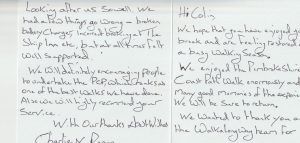 Hi Colin,
We hope that you have enjoyed your
break and are feeling rested after
busy Walking Season.
We enjoyed The Pembrokeshire
Coast Path Walk enormously and
Many good memories of the experience
We will be Sure to return.
We wanted to thank you and
the Walkalongway team for
Looking after us So well. We
had a few things go wrong - broken
battery Charger, incorrect booking at The
Ship Inn etc, but at all times felt
Well Supported.
We will definitely encourage people
to undertake the PCP which ranks as
one of the best walks we have done.
Also we will highly recommend your
Service.
With Our thanks & best wishes
Charlie